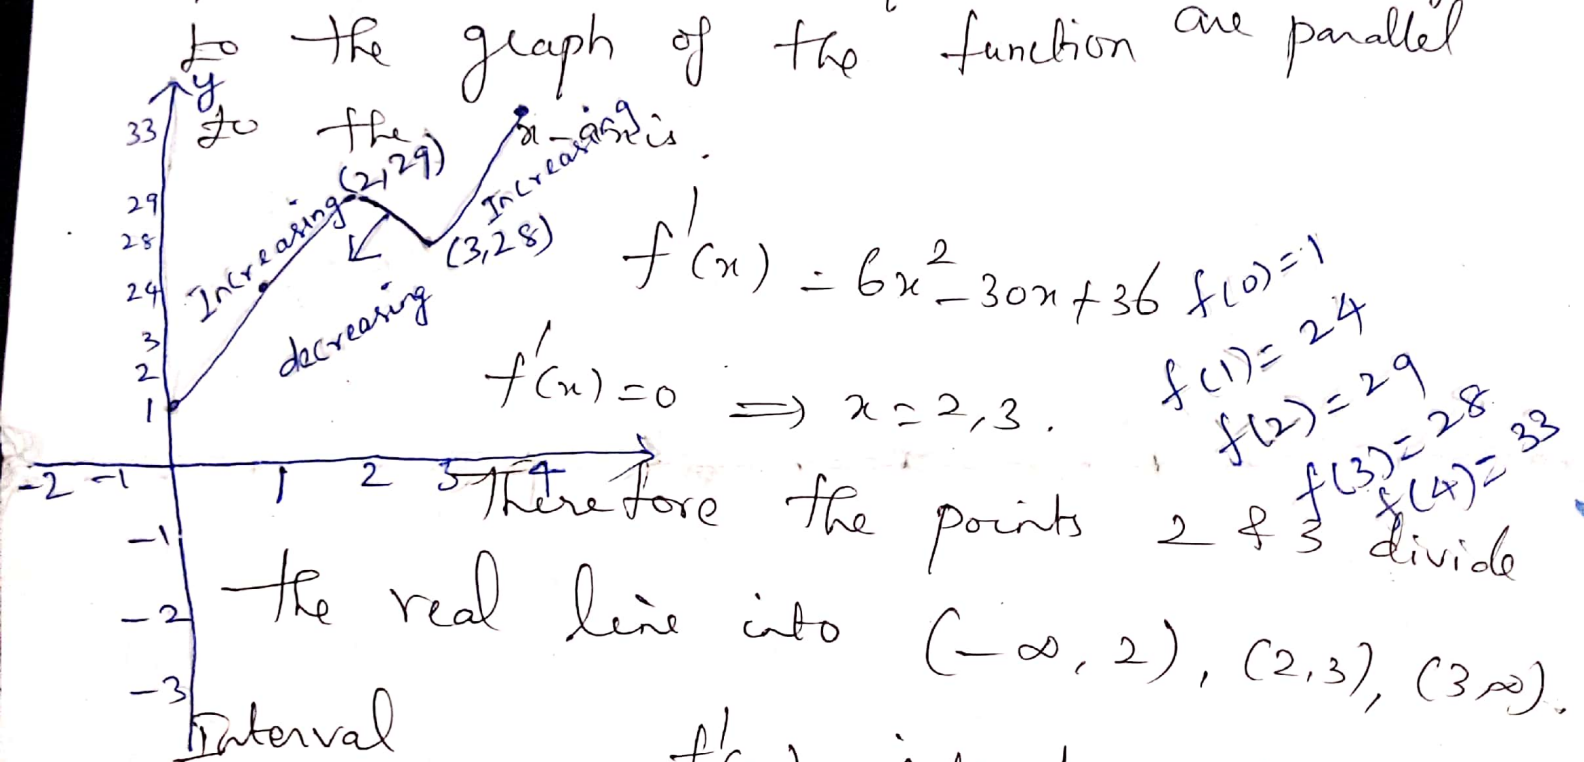 to the graph of the function are parallel
to the x-axis.
y
33
29
28
24
3
2
1
-1
-2
-3
-2 -1 1 2 3 4
Increasing
(2,29)
decreasing
(3,28)
Increasing
f'(x) = 6x² - 30x + 36
f'(x) = 0 ⇒ x = 2,3.
f(0)=1
f(1)=24
f(2)=29
f(3)=28
f(4)=33
Therefore the points 2 & 3 divide
the real line into (-∞, 2), (2,3), (3 ∞).
Interval